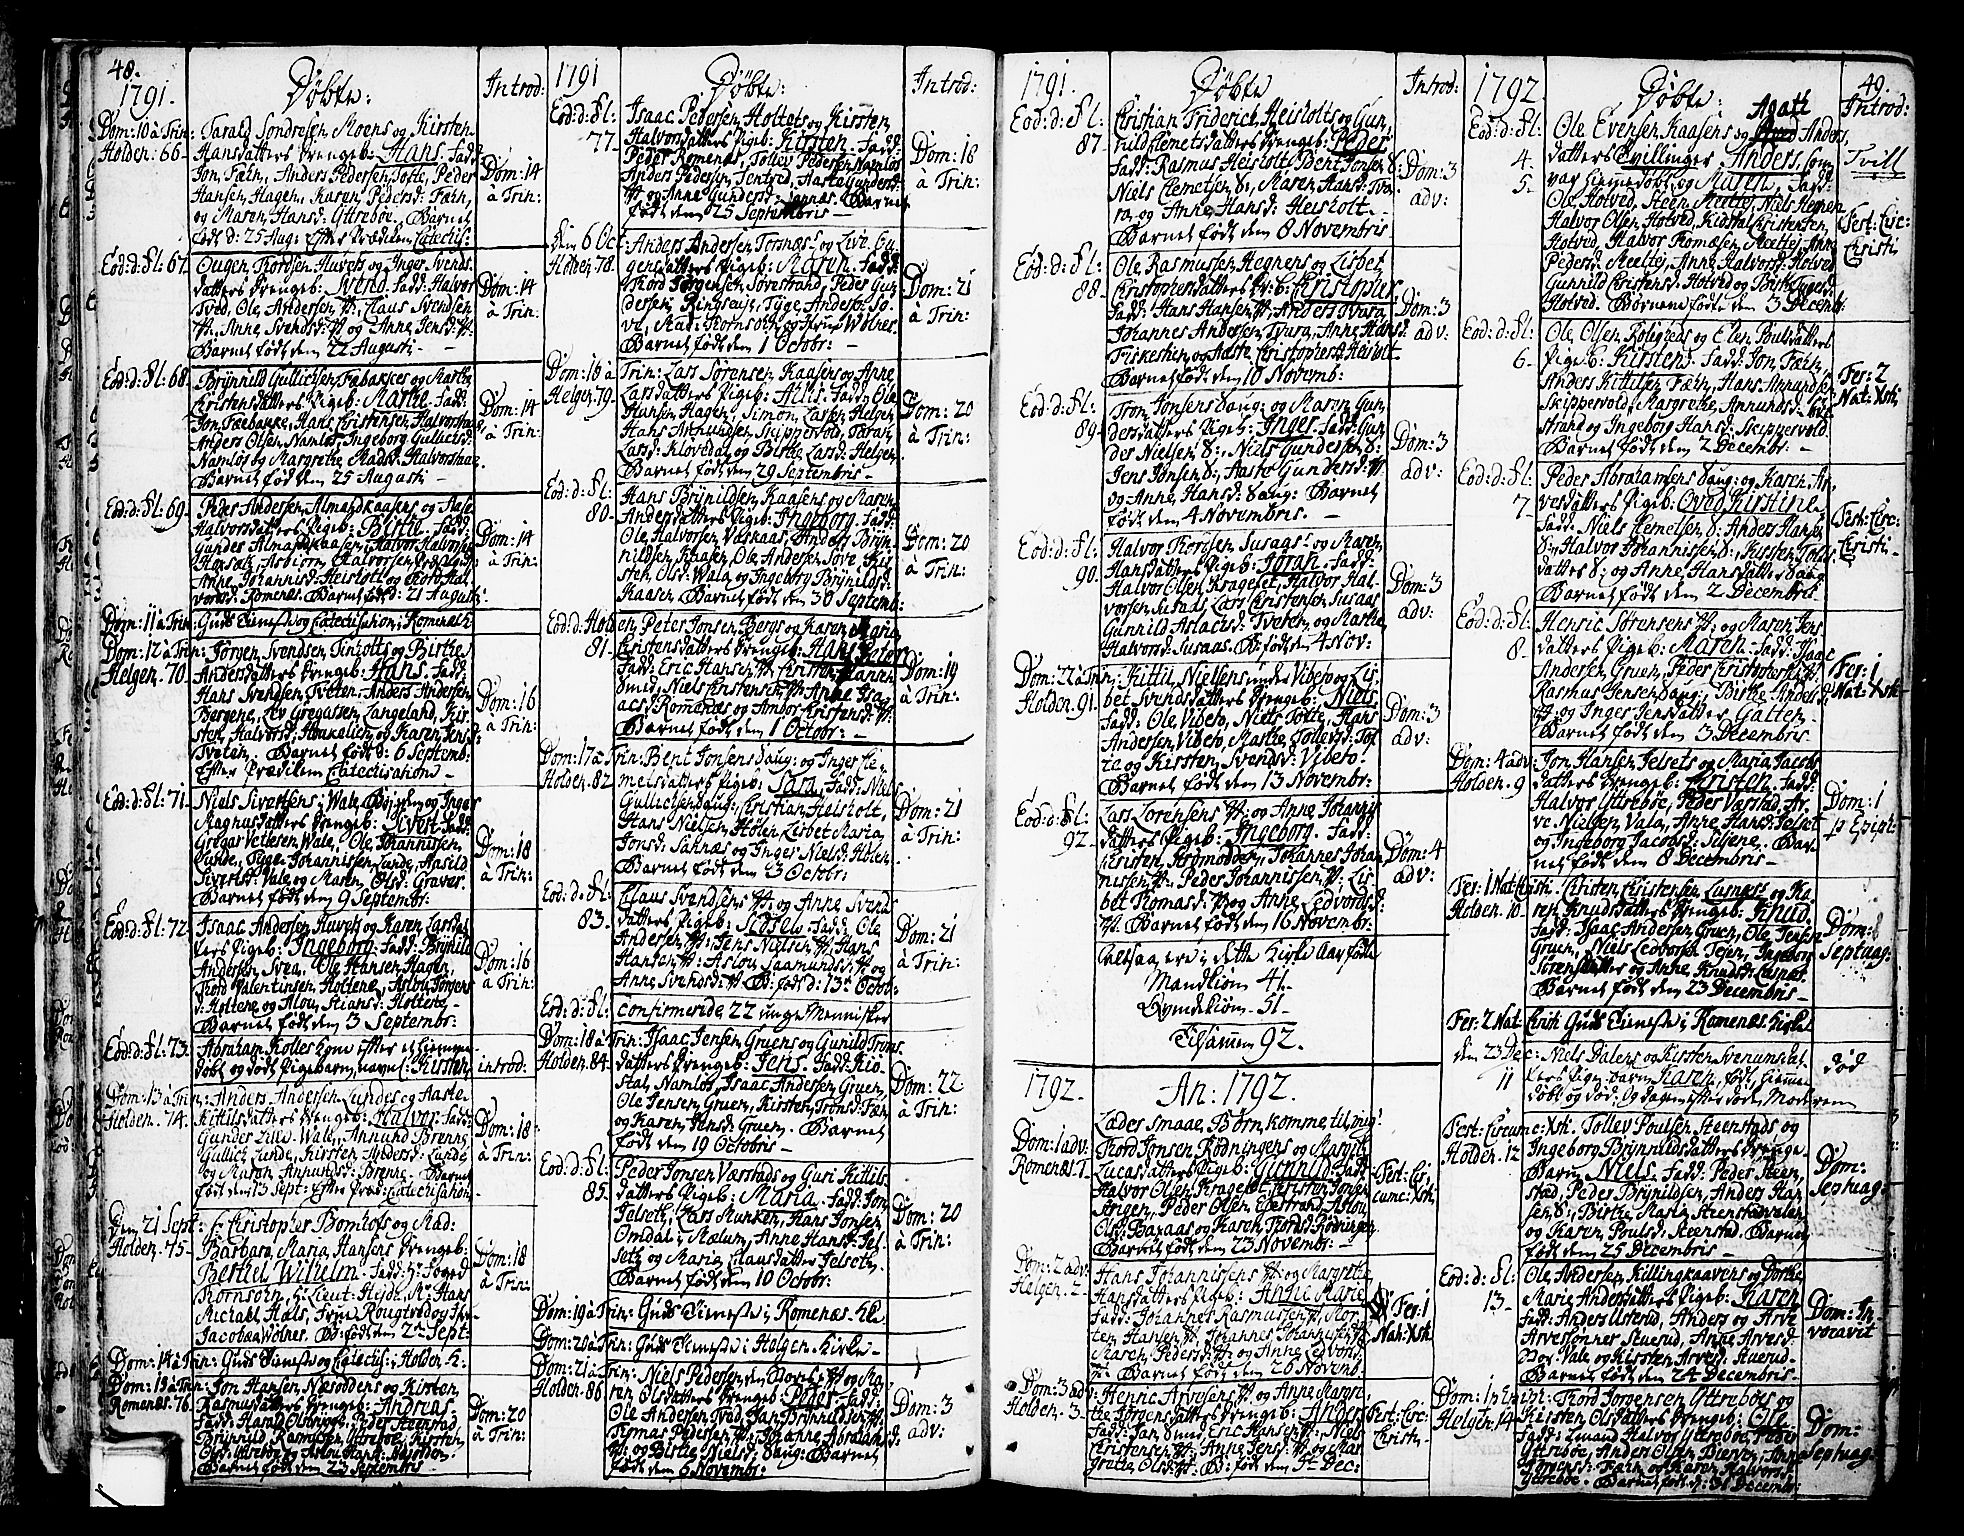 48.
1791.
Døbte:
Introd:
Dom: 10 à Trin:
Holden. 66.
Tarald Sondresen Moens og Kirsten
Hansdatters Drengeb: Hans. Fadd:
Jon, Færn, Anders Pedersen, Tofte, Peder
Hansen, Hagen, Karen, Pedersd: Færn,
og Maren, Hansd: Yttrebøe. Barnet
født d: 25 Aug: Efter Prædiken Catechis:
Dom: 14
à Trin:
Eod: d: fl: 67.
datters Drengeb: Svend. Fadd: Halvor
Tved, Ole, Andersen, Claus Svendsen
Anne, Svendsd: og Anne, Jensd:
Barnet født den 22 Augusti
Dom: 14
à Trin:
Eod: d: fl: 68.
Brynnild Gullichsen, Fæbakkes og Marthe
Christensdatters Pigeb: Marthe. Fadd:
Jon, Fæbakke, Hans Christensen, Halvorshaae
Anders Olsen, Namløs, Ingeborg Gullichsd:
Namløs og Margrethe Madsd: Halvorshaae
Barnet født den 25 Augusti
Dom: 14
à Trin:
Eod: d: fl: 69.
Peder Andersen, Almandkaasens og Aase
Halvorsdatters Pigeb: Birthe. Fadd:
Gunder Almandkaasen, Halvor Halvorsen
Anne, Johannisd: Heisholt og Tord Hal-
vorsd: Romenæs. Barnet født d: 21 Augusti
Dom: 14
à Trin:
Dom: 11 à Trin: Guds Tieneste og Catechisation i Romenæs K:
Dom: 12 à Trin:
Helgen. 70.
Jørgen, Svendsen, Tinholts og Birthe
Andersdatters Drengeb: Hans. Fadd:
Hans Svendsen, Tveten, Anders Andersen
Bergene, Lev Gregassen, Langeland, Kir-
sten, Halvorsd: Haakelien og Karen, Jensd:
Tveten. Barnet født d: 6 Septemb:
Efter Prædiken Catechisation
Dom: 16
à Trin:
Eod: d: fl: 71.
Niels Sivertsens i Wale, og Inger
Magnusdatters Drengeb: Sivert. Fadd:
Gregar Vetlesen, Wale, Ole, Johannissen,
Lunde, Tyge, Johannissen, Lunde, Aasild
Sivertsd: Vale og Maren, Olsd: Graver.
Barnet født den 9 Septembr:
Dom: 18
à Trin:
Eod: d: fl: 72.
Isaac Andersen, Huvets og Karen Larsdat-
ters Pigeb: Ingeborg. Fadd: Brynild
Andersen, Svea, Ole Hansen, Hagen,
Tord Valentinsen, Holtene, Aslou, Jørgens-
d: Holtene og Alou, Stiansd: Holtene.
Barnet født den 3 Septembr:
Dom: 16
à Trin:
Eod: d: fl: 73.
Abraham Kolles Kone efter et hiemme-
døbt og dødt Pigebarn, navnl: Kirsten
introd:
Dom: 13 à Trin:
Holden. 74.
Anders Andersen, Lundes og Aaste
Kittilsdatters Drengeb: Halvor. Fadd:
Gunder Wale, Annund Brenne
Gullich Lunde, Kirsten Andersd: Lunde
og Maren, Annundsd: Brenne. Barnet
født den 13 Sept: Efter Præd: Catechisation.
Dom: 18
à Trin:
Den 21 Sept:
Holden. 75.
Hr Christopher Bomhofs og Mad:
Barbara, Maria, Hansens Drengeb:
Berthel Wilhelm. Fadd: Hr Foged
Tornsohn, Hr Lieut: Heide, Mr: Hans
Michael Hals, Frue Rougtved og Jfr:
Jacobæa Wolnes. B: født den 2den Sept:
Dom: 18
à Trin:
Dom: 14 à Trin: Guds Tieneste og Catechis: i Holden K:
Dom: 15 à Trin:
Romenæs. 76.
Jon Hansen, Næsoddens og Kirsten
Rasmusdatters Drengeb: Andreas
Fadd: Harald Olsbryge, Peder Steenstad
Brynnild Rasmussen, Yttrebøe, Kirsten,
Barnet født den 23 Septembris
Dom: 20
à Trin:
1791
Døbte:
Introd:
Eod: d: fl:
77.
Isaac Pedersen, Holtets og Kirsten,
Halvorsdatters Pigeb: Kirsten. Fadd:
Peder Romenæs, Tollev Pedersen, Namløs
Anders Pedersen, Tentved, Aaste Gundersd:
og Anne Gundersd: Barnet
født den 25 Septembris
Dom: 18
à Trin:
Den 6 Oct:
Holden. 78.
Anders Andersen, Tornæs og Live Eu-
gensdatters Pigeb: Maren. Fadd:
Thord Jørgensen, Sovestrand, Peder Gun-
dersen, Ringsevje, Tyge, Anders Sø-
ve, Mad: Tornsohn og Jfru Wolnes.
Barnet født den 1 Octobr:
Dom: 21
à Trin:
Dom: 16 à Trin:
Helgen. 79.
Lars Sørensen, Kaasens og Anne
Larsdatters Pigeb: Allis. Fadd: Ole
Hansen, Hagen, Simon, Larsen, Helgen
Hans Annundsen, Skippervold, Taran
Larsd: Klovedal og Birthe Larsd: Helgen
Barnet født den 29 Septembris
Dom: 20
à Trin:
Eod: d: fl:
80.
Hans Brynildsen, Kaasens og Maren
Andersdatters Pigeb: Ingeborg. Fadd:
Ole Halvorsen, Væskaas, Anders Bryn-
nildsen, Kaasen, Ole Andersen, Søve, Kir-
sten, Olsd: Wala og Ingeborg Brynildsd:
Kaasen. Barnet født den 30 Septemb:
Dom: 20
à Trin:
Eod: d: Holden,
81.
Peter Jonsen, Bergs og Karen Maria
Christensdatters Drengeb: Hans Jaten
Fadd: Eric Hansen, Christen Larsen
Smud, Niels Christensen, Anne Isa-
acsd: Romanæs og Ambor Christensd:
Barnet født den 1 Octobr:
Dom: 19
à Trin:
Dom: 17 à Trin:
Holden. 82
Bent Jonsens Daug: og Inger Cle-
metsdatters Pigeb: Sara. Fadd: Niels
Gullichsen Daug:, Christian, Heisholt,
Hans Nielsen, Holen, Lisbet Maria
Jonsd: Sahnæs og Inger Nielsd: Holen.
Barnet født den 3 Octobr:
Dom: 21
à Trin:
Eod: d: fl:
83.
Claus Svendsens og Anne Svends-
datters Pigeb: Fadd: Ole
Andersen, Jens Nielsen, Hans
Hansen, Aslou, Aamundsd: og
Anne Svendsd: B: født d: 13 Octob:
Dom: 21
à Trin:
Eod: d: fl: Confirmerede 22 unge Mennisker
Dom: 18 à Trin:
Holden. 84.
Isaac Jensen Gruens og Gunild Trons-
datters Drengeb: Jens. Fadd: Kiø-
stal, Namløs, Isaac Andersen, Gruen,
Ole Jensen, Gruen, Kirsten, Tronsd: Færn
og Karen, Jensd: Gruen. Barnet
født den 19 Octobris
Dom: 22
à Trin:
Eod: d: fl:
85.
Peder Jonsen, Værstads og Guri Kittils-
datters Pigeb: Maria. Fadd: Jon,
Jelseth, Lars Munken, Hans Jonsen
Omdal i Mælum, Anne Hansd: Jel-
seth og Maria Clausdatter Jelseth.
Barnet født den 10 Octobr:
Dom: 20
à Trin:
Dom: 19 à Trin: Guds Tieneste i Romenæs. Kke
Dom: 20 à Trin: Guds Tieneste i Helgen Kirke
Dom: 21 à Trin:
Holden. 86.
Niels Pedersen, og Ma-
ren Olsdatters Drengeb: Peder. Fadd:
Ole Andersen, Tvad, Jan Brynnildsen
Thomas Pedersen, Johanne Abrahamsd:
og Birthe Nielsd: Daug: Barnet
født den 6 Novembr:
Dom: 3
adv:
1791.
Døbte
Introd:
Eod: d: fl:
87.
Christian Friderich, Heisholts og Gun-
nild Clemetsdatters Drengeb: Peder
Fadd: Rasmus Heisholt, Bent Jonsen
Niels Clemetsen, Maren, Hansd: Tva-
ra, og Anne, Hansd: Heisholt.
Barnet født den 8 Novembris
Dom: 3
adv:
Eod: d: fl:
88.
Ole Rasmussen, Hegnens og Lisbet
Christophersdatters Dr: b: Christopher
Fadd: Hans Hansen, Anders Tvara
Johannes Andersen, Tvara, Anne Hansd:
Fiskestien og Aaste Christophersd: Heisholt
Barnet født den 10 Novemb:
Dom: 3
adv:
Eod: d: fl:
89.
Tron Jonsens Daug: og Maren Gun-
dersdatters Pigeb: Inger. Fadd: Gun-
der Nielsen, Niels Gundersen
Jens Jonsen, Aaste Gundersd:
og Anne, Hansd: Daug: Barnet
født den 4 Novembris.
Dom: 3
adv:
Eod: d: fl:
90.
Halvor Thorsen Susaas og Maren
Hansdatters Pigeb: Joran. Fadd:
Halvor Olsen, Krageset, Halvor Hal-
vorsen Susaas, Lars Christensen Susaas
Gunnild Aslachsd: Tveten, og Marthe
Halvorsd: Susaas. B: født den 4 Nov:
Dom: 3
adv:
Dom: 22 à Trin:
Holden. 91.
Kittil, Nielsens under Vibeto og Lis-
bet Svendsdatters Drengeb: Niels
Fadd: Ole, Vibeto, Niels Tofte, Hans
Andersen, Vibeto, Marthe Tollevsd: Tof-
te og Kirsten, Svendsd: Vibeto.
Barnet født den 13 Novembr:
Dom: 3
adv:
Eod: d: fl:
92.
Lars Lorensens og Anne Johannis-
datters Pigeb: Ingeborg. Fadd:
Christen, Kromodden, Johannes Johan-
nissen, Peder Johannissen, Lis-
bet Thomasd: og Anne, Edvordsd:
Barnet født den 16 Novembr:
Dom: 4
adv:
Altsaa ere i dette Kirke Aar fødte
Mandkiøn 41.
Qvindekiøn 51.
Tilsammen 92.
1792.
An: 1792.
Lader smaae Børn komme til mig!
Dom: 1 adv:
Romenæs. 1.
Thord Jonsen, Rødningens og Margit
Lucasdatters Pigeb: Gunnild. Fadd:
Halvor Olsen, Krageset, Christen Jonsen
Aringen, Peder Olsen, Eikstrand, Aslou,
Olsd: Baxaas og Karen Thordsd: Rødningen
Barnet født den 23 Novembr:
Fest: Cir-
cumc: Xsti
Dom: 2 adv:
Helgen. 2.
Hans Johannissens og Margrethe
Hansdatters Pigeb: Anne Marie
Fadd: Johannes Rasmussen, Mor-
ten Hansen, Johannes Johannissen
Maren, Pedersd: og Anne Edvord-
Barnet født den 26 Novemb:
Fer: 1
Nat: Xsti
Dom: 3 adv:
Holden. 3.
Henric Arvesens og Anne Magre-
the Jørgensdatters Drengeb: Anders
Fadd: Jan, Smud, Eric Hansen, Niels
Christensen, Anne Jensd: og Mar-
grethe Olsd: B: født den 5te Dec:
Fest: Circ:
Christi
1792
Døbte:
49.
Introd:
Eod: d: fl:
4.
5.
Agath
Ole Evensen, Kaasens og Anders-
datters Tvillinger, Anders, som
var hiemmedøbt, og Maren, Fadd:
Ole, Hotved, Steen, Meeltej, Niels Hegnen
Halvor Olsen, Hotved, Kiøstal Christensen,
Hotved, Halvor Thomæsen, Meeltej, Anne
Pedersd: Meeltej, Anne Halvorsd: Hotved
Gunnild Christensd: Hotved og
Hotved. Børnene fødte den 3 Decemb:
Tvill
Fest: Circ:
Christi
Eod: d: fl:
6.
Ole Olsen, Roligheds og Elen Poulsdatters
Pigeb: Kirsten. Fadd: Jon, Færn,
Anders Kittilsen, Færn, Hans Annundsen
Skippervold, Margrethe, Annundsd:
strand og Ingeborg Hansd: Skippervold
Barnet født den 2 Decembr:
Fer: 2
Nat: Xsti
Eod: d: fl:
7.
Peder Abrahamsens Daug: og Karen, Ar-
vesdatters Pigeb: Qved Kirstine.
Fadd: Niels Clemetsen, Anders Hansen
Halvor Johannissen, Kirsten Tolls-
datter og Anne, Hansdatter Daug
Barnet født den 2 Decembris.
Fest: Circ:
Christi
Eod: d: fl:
8.
Henric Sørensens og Maren Jens
datters Pigeb: Maren. Fadd: Isaac
Andersen, Gruen, Peder Christophersen
Rasmus Jensen Daug:, Birthe Andersd:
og Inger Jensdatter Galten.
Barnet født den 3 Decembris
Fer: 1
Nat: Xsti
Dom: 4 adv:
Holden. 9
Jon Hansen, Jelsets og Maria Jacobs-
datters Drengeb: Christen. Fadd:
Halvor Yttrebøe, Peder Værstad, Ar-
ve, Nielsen, Vala, Anne Hansd: Jelset
og Ingeborg Jacobsd: Siljene. Bar-
net født den 8 Decembris
Dom: 1
p Epiph:
Fer: 1 Nat: Christi:
Holden. 10.
Christen Christensen Lampers og Ka-
ren Knudsdatters Drengeb: Knud.
Fadd: Isaac Andersen, Gruen, Ole Jensen
Gruen, Niels Leoborg, Tejen, Ingeborg
Sørensdatter og Anne, Knudsd:
Barnet født den 23 Decembris
Dom:
Septuag:
Fer: 2 Nat: Christi Guds Tieneste i Romenæs. Kirke
den 23 Dec:
11
Niels Dalens og Kirsten Svenumsdat-
ters Pige-barn Karen, født, hiemme-
døbt og død. Og Dagen efter døde Moderen
død
Fest: Circumc: Xsti:
Holden. 12
Tollev Poulsen, Steenstads og
Ingeborg Brynnildsdatters Drenge-
barn Niels. Fadd: Peder Steen-
stad, Peder Brynildsen, Anders Han-
sen, Birthe Maria, Steenstadvalen
og Karen, Poulsd: Steenstad. Barnet
født den 25 Decembris
Dom:
Septuag:
Eod: d: fl:
13.
Ole Andersen, Killingkaavens og Dorthe
Marie Andersdatters Pigeb: Karen
Fadd: Anders Usterud, Anders og Arve
Arvesønner Stuerud, Anne Arvesd:
Vale og Kirsten Arvesd: Stuerud.
Barnet født den 24 Decembris.
Dom: In-
vocavit
Dom: 1 p Epiph:
Helgen. 14.
Thord Jørgensen, Yttrebøes og
Kirsten Olsdatters Drengeb: Ole
Fadd: Halvor Yttrebøe, Peder
Yttrebøe, Anders Olsen, Anne
Jørgensd: Færn og Karen, Halvorsd:
Yttrebøe. Barnet født d: 31 Decembr:
Dom:
Septuag: